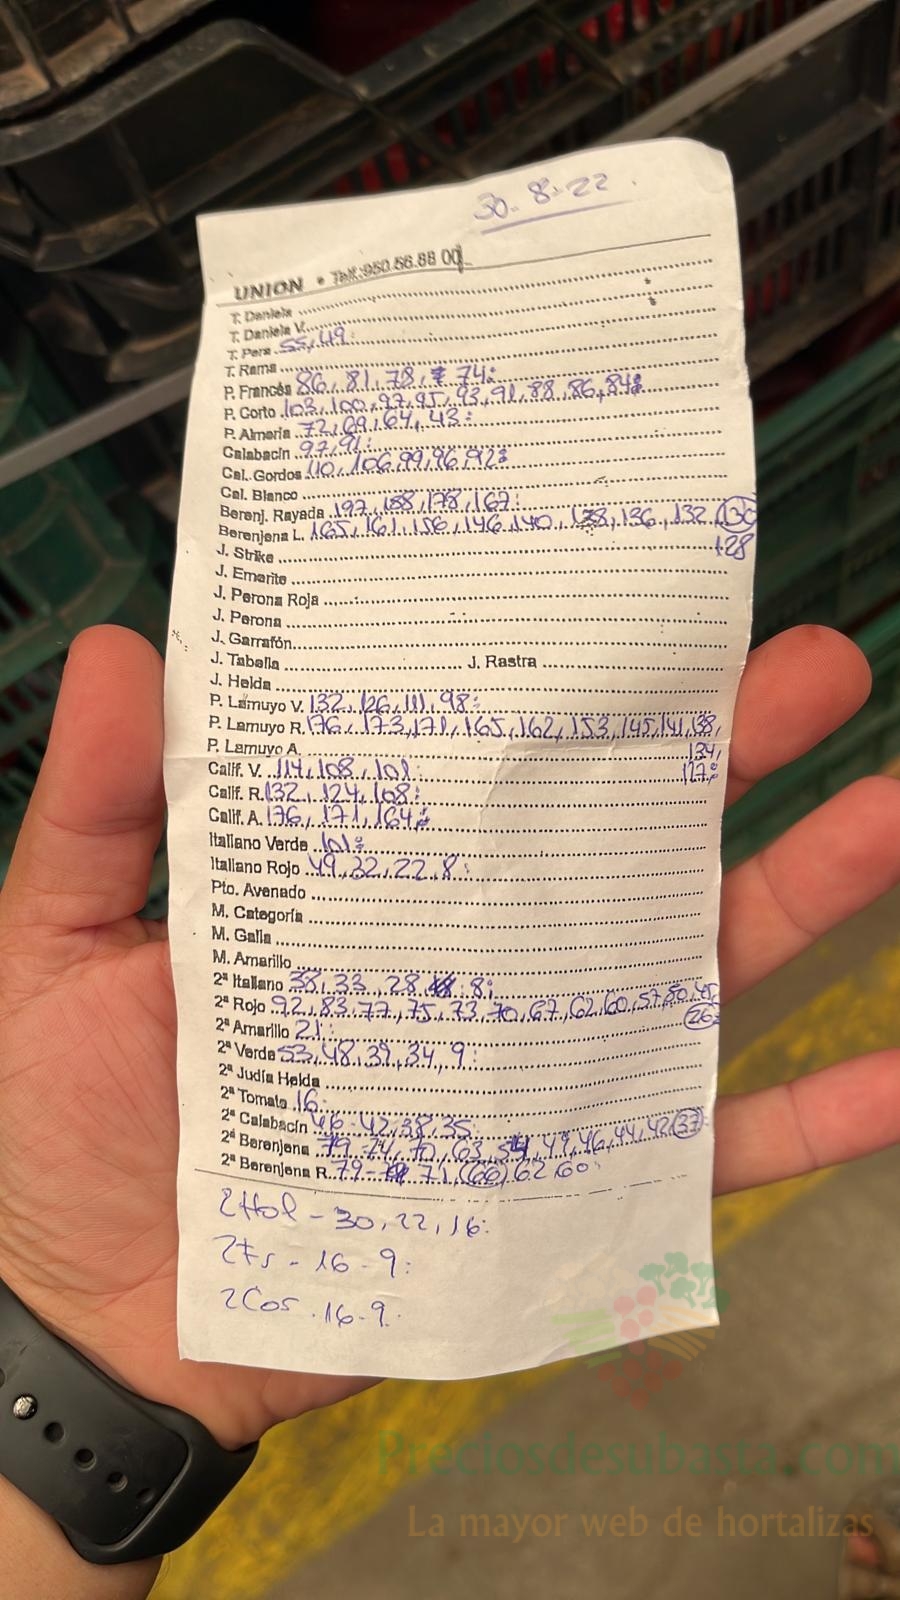 30-8-22
UNION • Telf.:950.56.88 00
T. Daniela
T. Daniela V.
T. Pera 55, 49:
T. Rama
P. Francés 86, 81, 78, 74:
P. Corto 103, 100, 97, 95, 93, 91, 88, 86, 84:
P. Almería 72, 69, 64, 43:
Calabacín 97, 91:
Cal. Gordos 110, 106, 99, 96, 92:
Cal. Blanco
Berenj. Rayada 197, 188, 178, 167:
Berenjena L. 165, 161, 156, 146, 140, 138, 136, 132, 130
128
J. Strike
J. Emerite
J. Perona Roja
J. Perona
J. Garrafón
J. Tabella J. Rastra
J. Helda
P. Lamuyo V. 132, 126, 111, 98:
P. Lamuyo R. 176, 173, 171, 165, 162, 153, 145, 141, 138,
P. Lamuyo A. 134,
127:
Calif. V. 114, 108, 101:
Calif. R. 132, 124, 108:
Calif. A. 176, 171, 164:
Italiano Verde 101:
Italiano Rojo 49, 32, 22, 8:
Pto. Avenado
M. Categoría
M. Galia
M. Amarillo
2ª Italiano 38, 33, 28, 8:
2ª Rojo 92, 83, 77, 75, 73, 70, 67, 62, 60, 57, 50, 45
26:
2ª Amarillo 21:
2ª Verde 53, 48, 39, 34, 9:
2ª Judía Helda
2ª Tomate 16:
2ª Calabacín 46-42, 38, 35:
2ª Berenjena 79-74, 70, 63, 54, 49, 46, 44, 42, 37:
2ª Berenjena R. 79- 71, (66) 62, 60:
2Hol - 30, 22, 16:
2Fr - 16 - 9:
2Cor . 16-9.
Preciosdesubasta.com
La mayor web de hortalizas